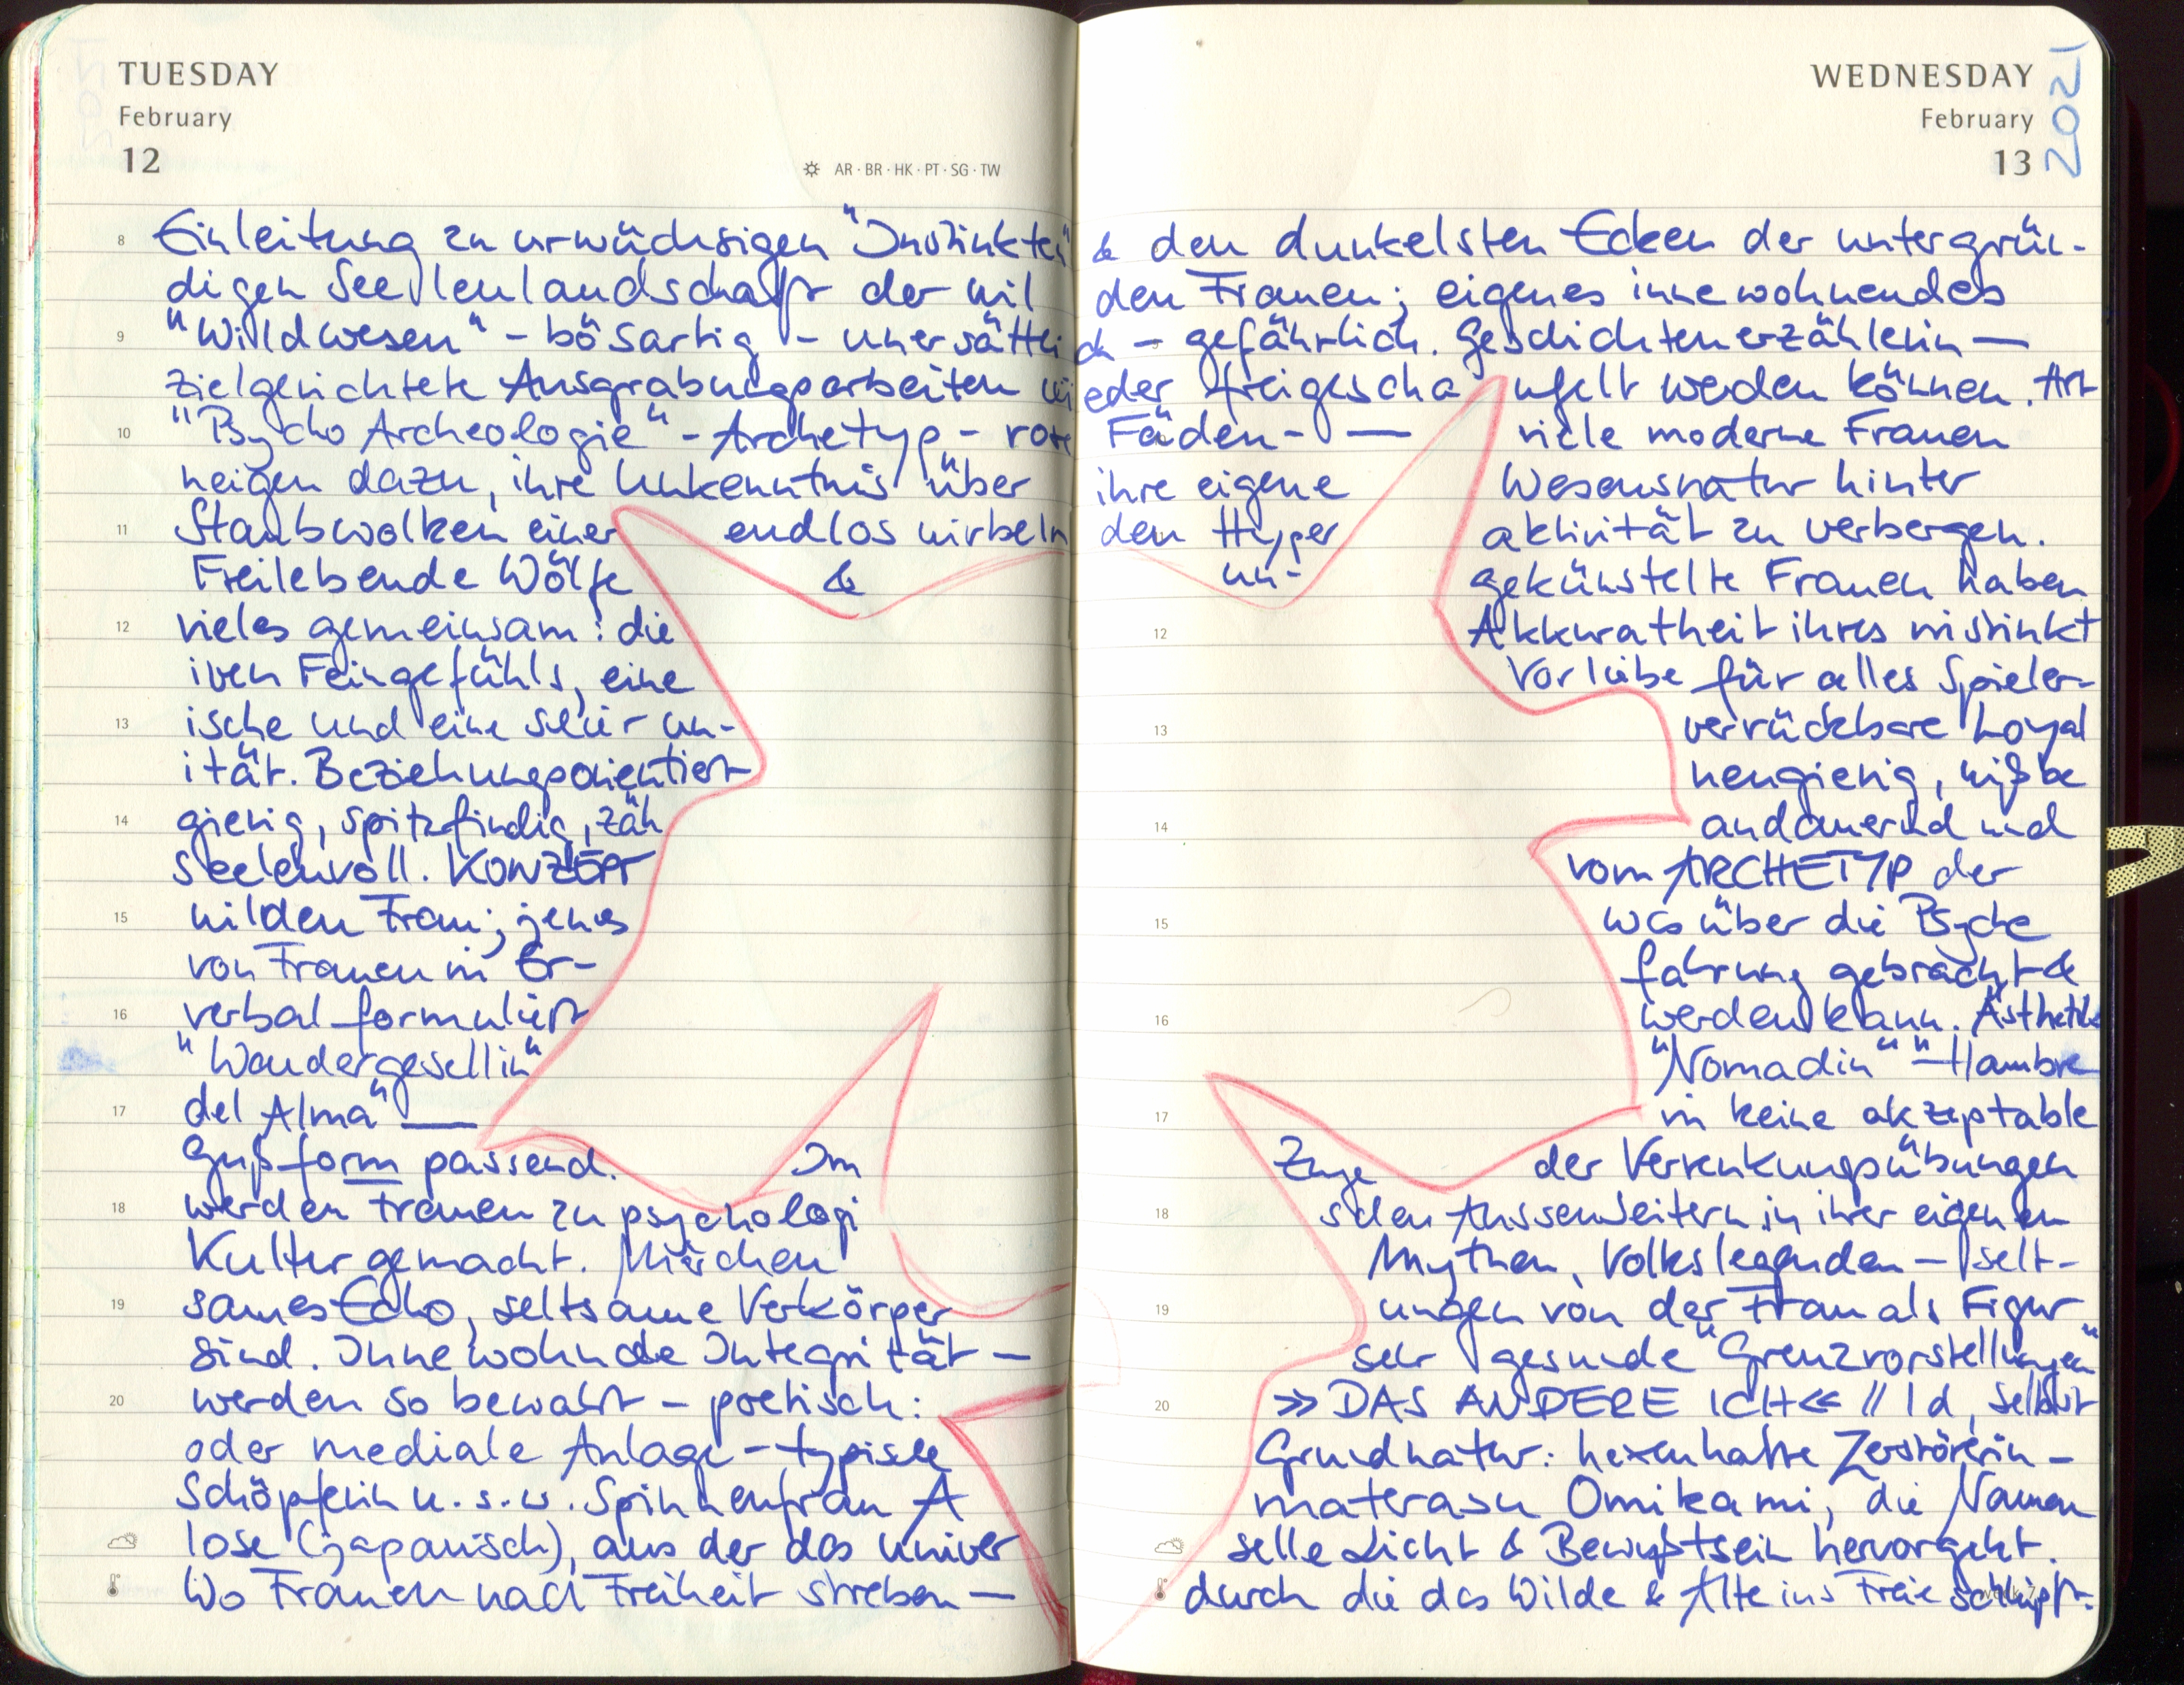 TUESDAY
February
12
AR · BR · HK · PT · SG · TW
WEDNESDAY
February
13
2021
8 Einleitung zu urwüchsigen "Instinkten" & den dunkelsten Ecken der untergrün-
digen Seelenlandschaft der wil den Frauen; eigenes innewohnendes
9 "Wildwesen" - bösartig - unersättli ch - gefährlich. Geschichtenerzählerin —
zielgerichtete Ausgrabungsarbeiten wi eder freigescha ufelt werden können. Art
10 "Psycho Archeologie" - Archetyp - rote Fäden - — viele moderne Frauen
neigen dazu, ihre Unkenntnis über ihre eigene Wesensnatur hinter
11 Staubwolken einer endlos wirbeln den Hyper aktivität zu verbergen.
Freilebende Wölfe & un- gekünstelte Frauen haben
12 vieles gemeinsam: die 12 Akkuratheit ihres instinkt
iven Feingefühls, eine Vorliebe für alles Spieler-
13 ische und eine sehr un- 13 verrückbare Loyal
ität. Beziehungsorientiert neugierig, wißbe
14 gierig, spitzfindig, zäh 14 andauernd und
seelenvoll. KONZEPT vom ARCHETYP der
15 wilden Frau; jenes 15 was über die Psyche
von Frauen in Er- fahrung gebracht &
16 verbal formuliert 16 werden kann. Ästhetik
"Wandergesellin" "Nomadin" " — Hambre
17 del Alma" — 17 in keine akzeptable
Gußform passend. Im Zuge der Verrenkungsübungen
18 werden Frauen zu psychologi 18 schen Aussenseitern in ihrer eigenen
Kultur gemacht. Märchen Mythen, Volkslegenden — selt-
19 sames Echo, seltsame Verkörper 19 ungen von der Frau als Figur
sind. Innewohnde Integrität — sehr gesunde "Grenzvorstellungen"
20 werden so bewahrt - poetisch: 20 >> DAS ANDERE ICH << // Id, Selbst
oder mediale Anlage - typische Grundnatur: hexenhafte Zerstörerin -
Schöpferin u.s.w. Spinnenfrau A materasu Omikami, die Namen
lose (japanisch), aus der das univer selle Licht & Bewußtsein hervorgeht.
Wo Frauen nach Freiheit streben — durch die das Wilde & Alte ins Freie schlüpft.